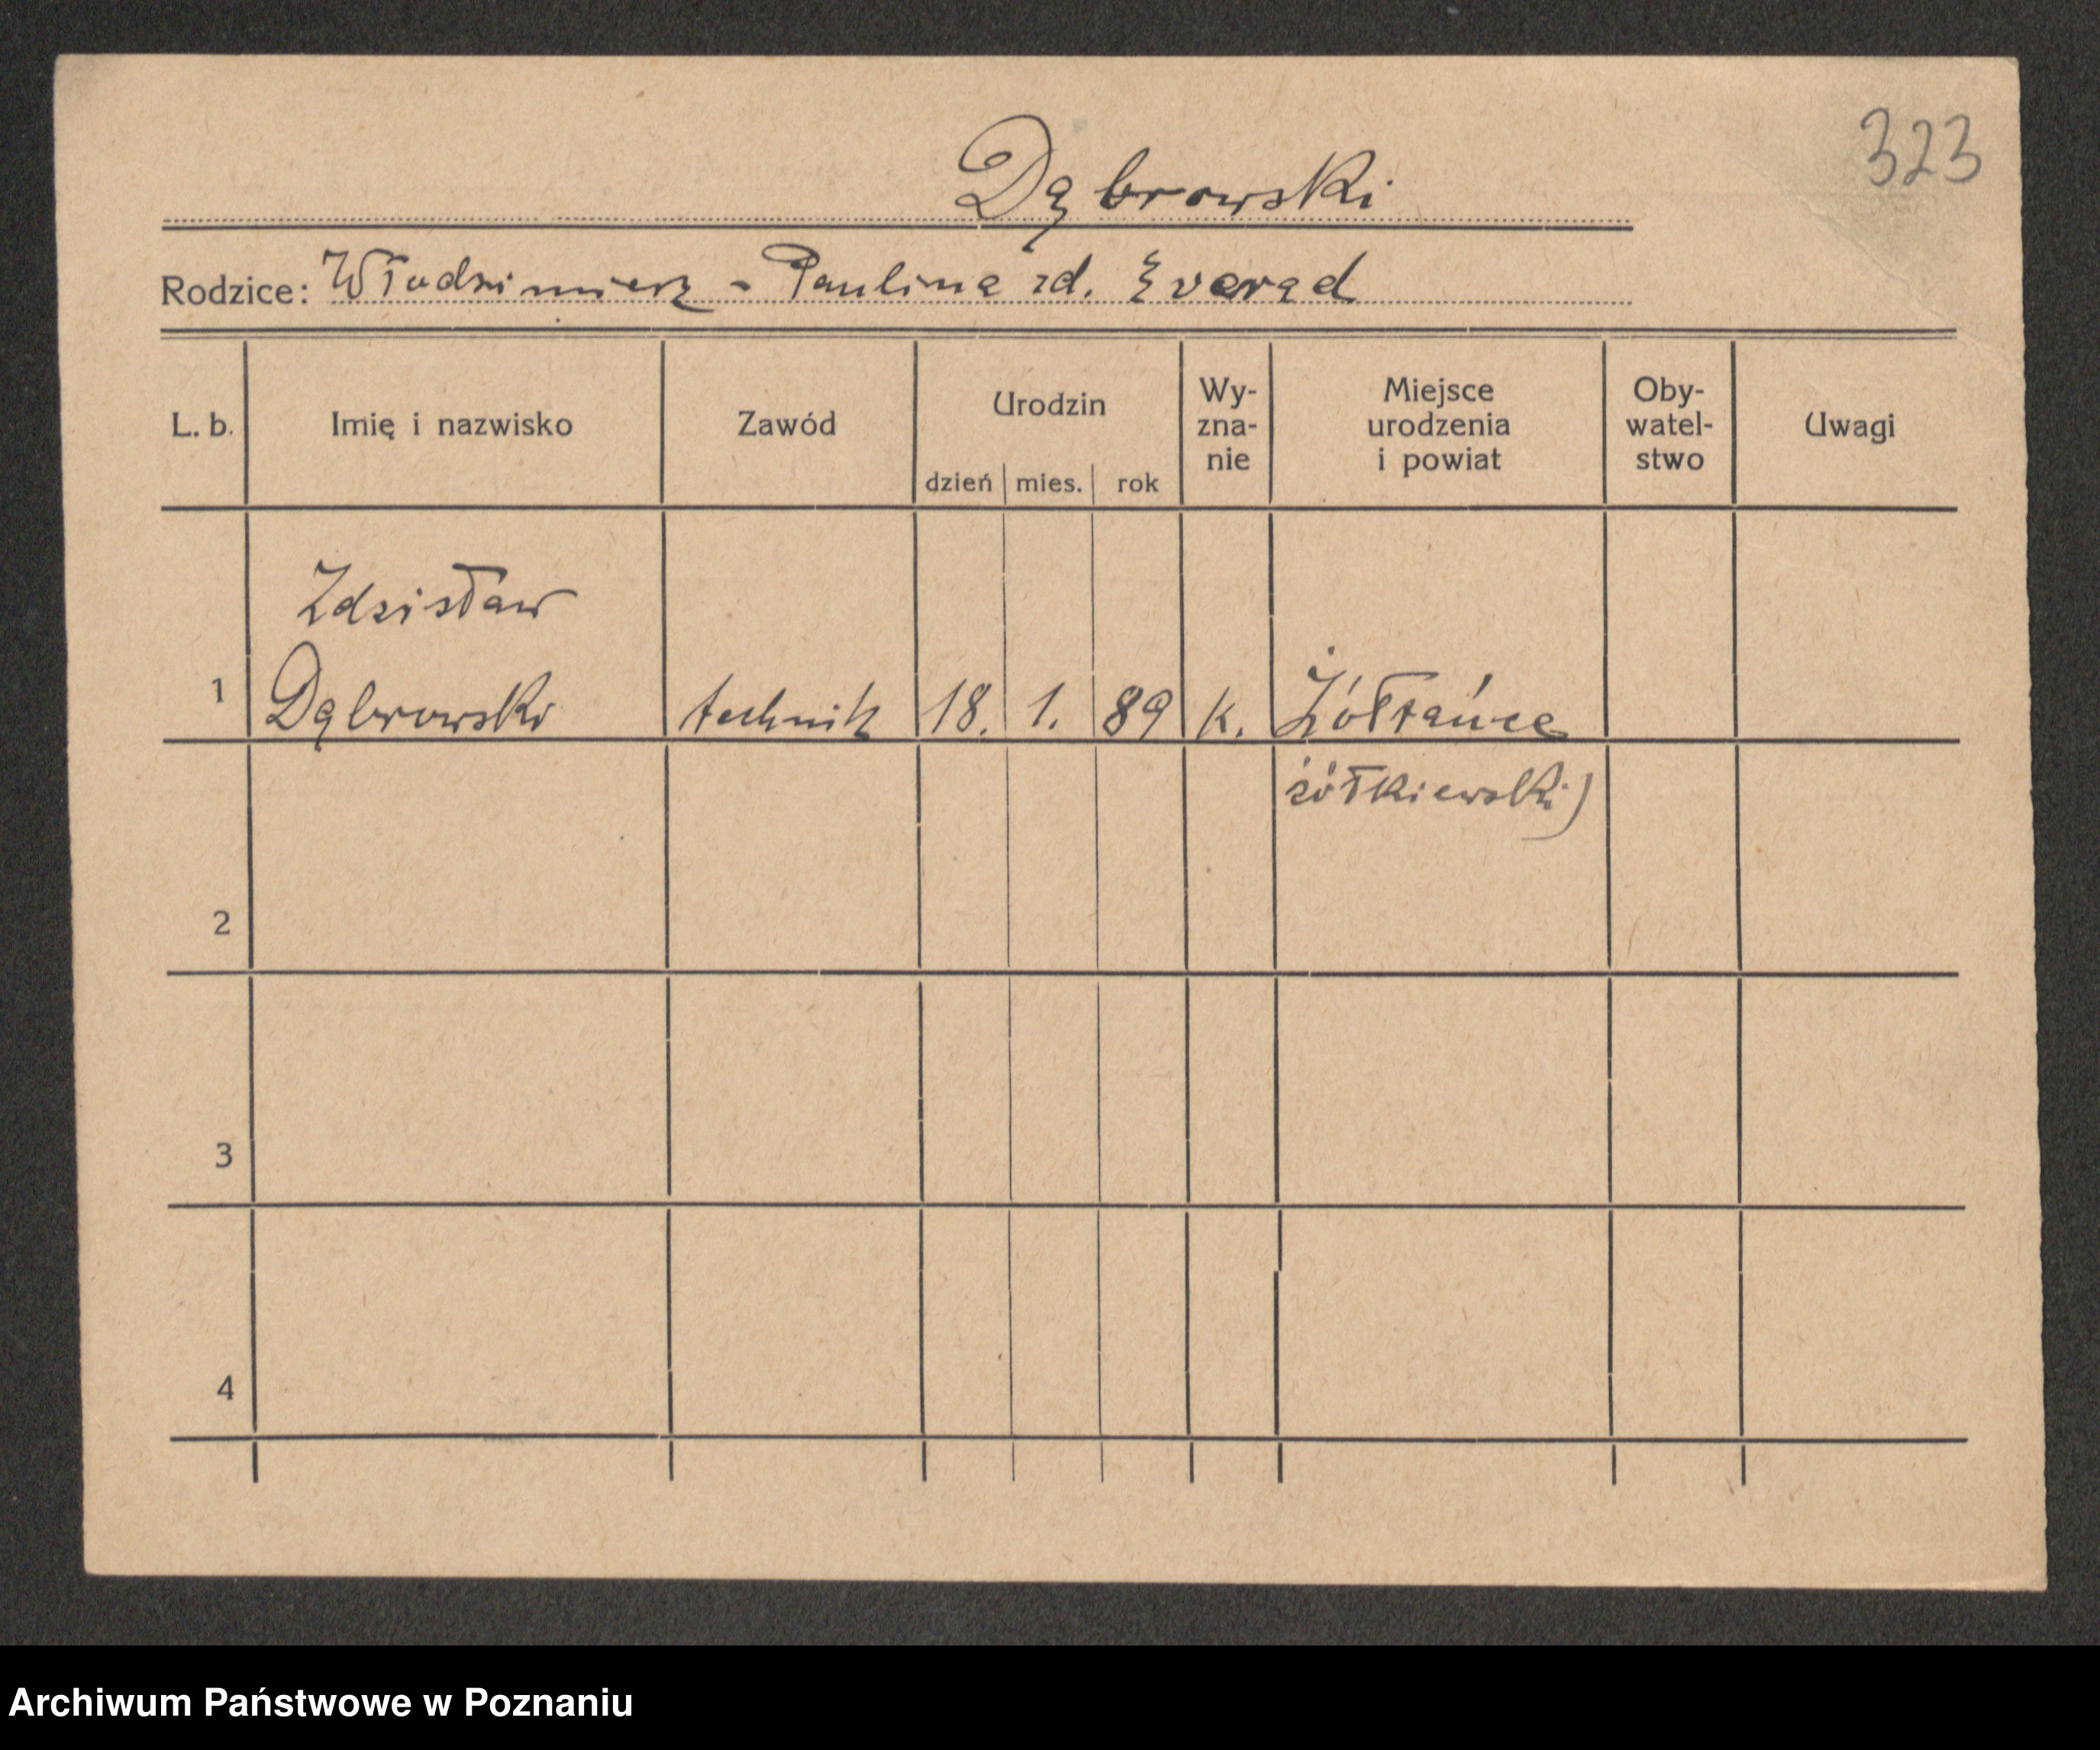 323
Dąbrowski
Rodzice: Włodzimierz - Paulina zd. Everad
L. b. Imię i nazwisko Zawód Urodzin dzień mies. rok Wy-zna-nie Miejsce urodzenia i powiat Oby-watel-stwo Uwagi
Zdzisław
1 Dąbrowski technik 18. 1. 89 k. Żółtańce
żółkiewski)
2
3
4
Archiwum Państwowe w Poznaniu